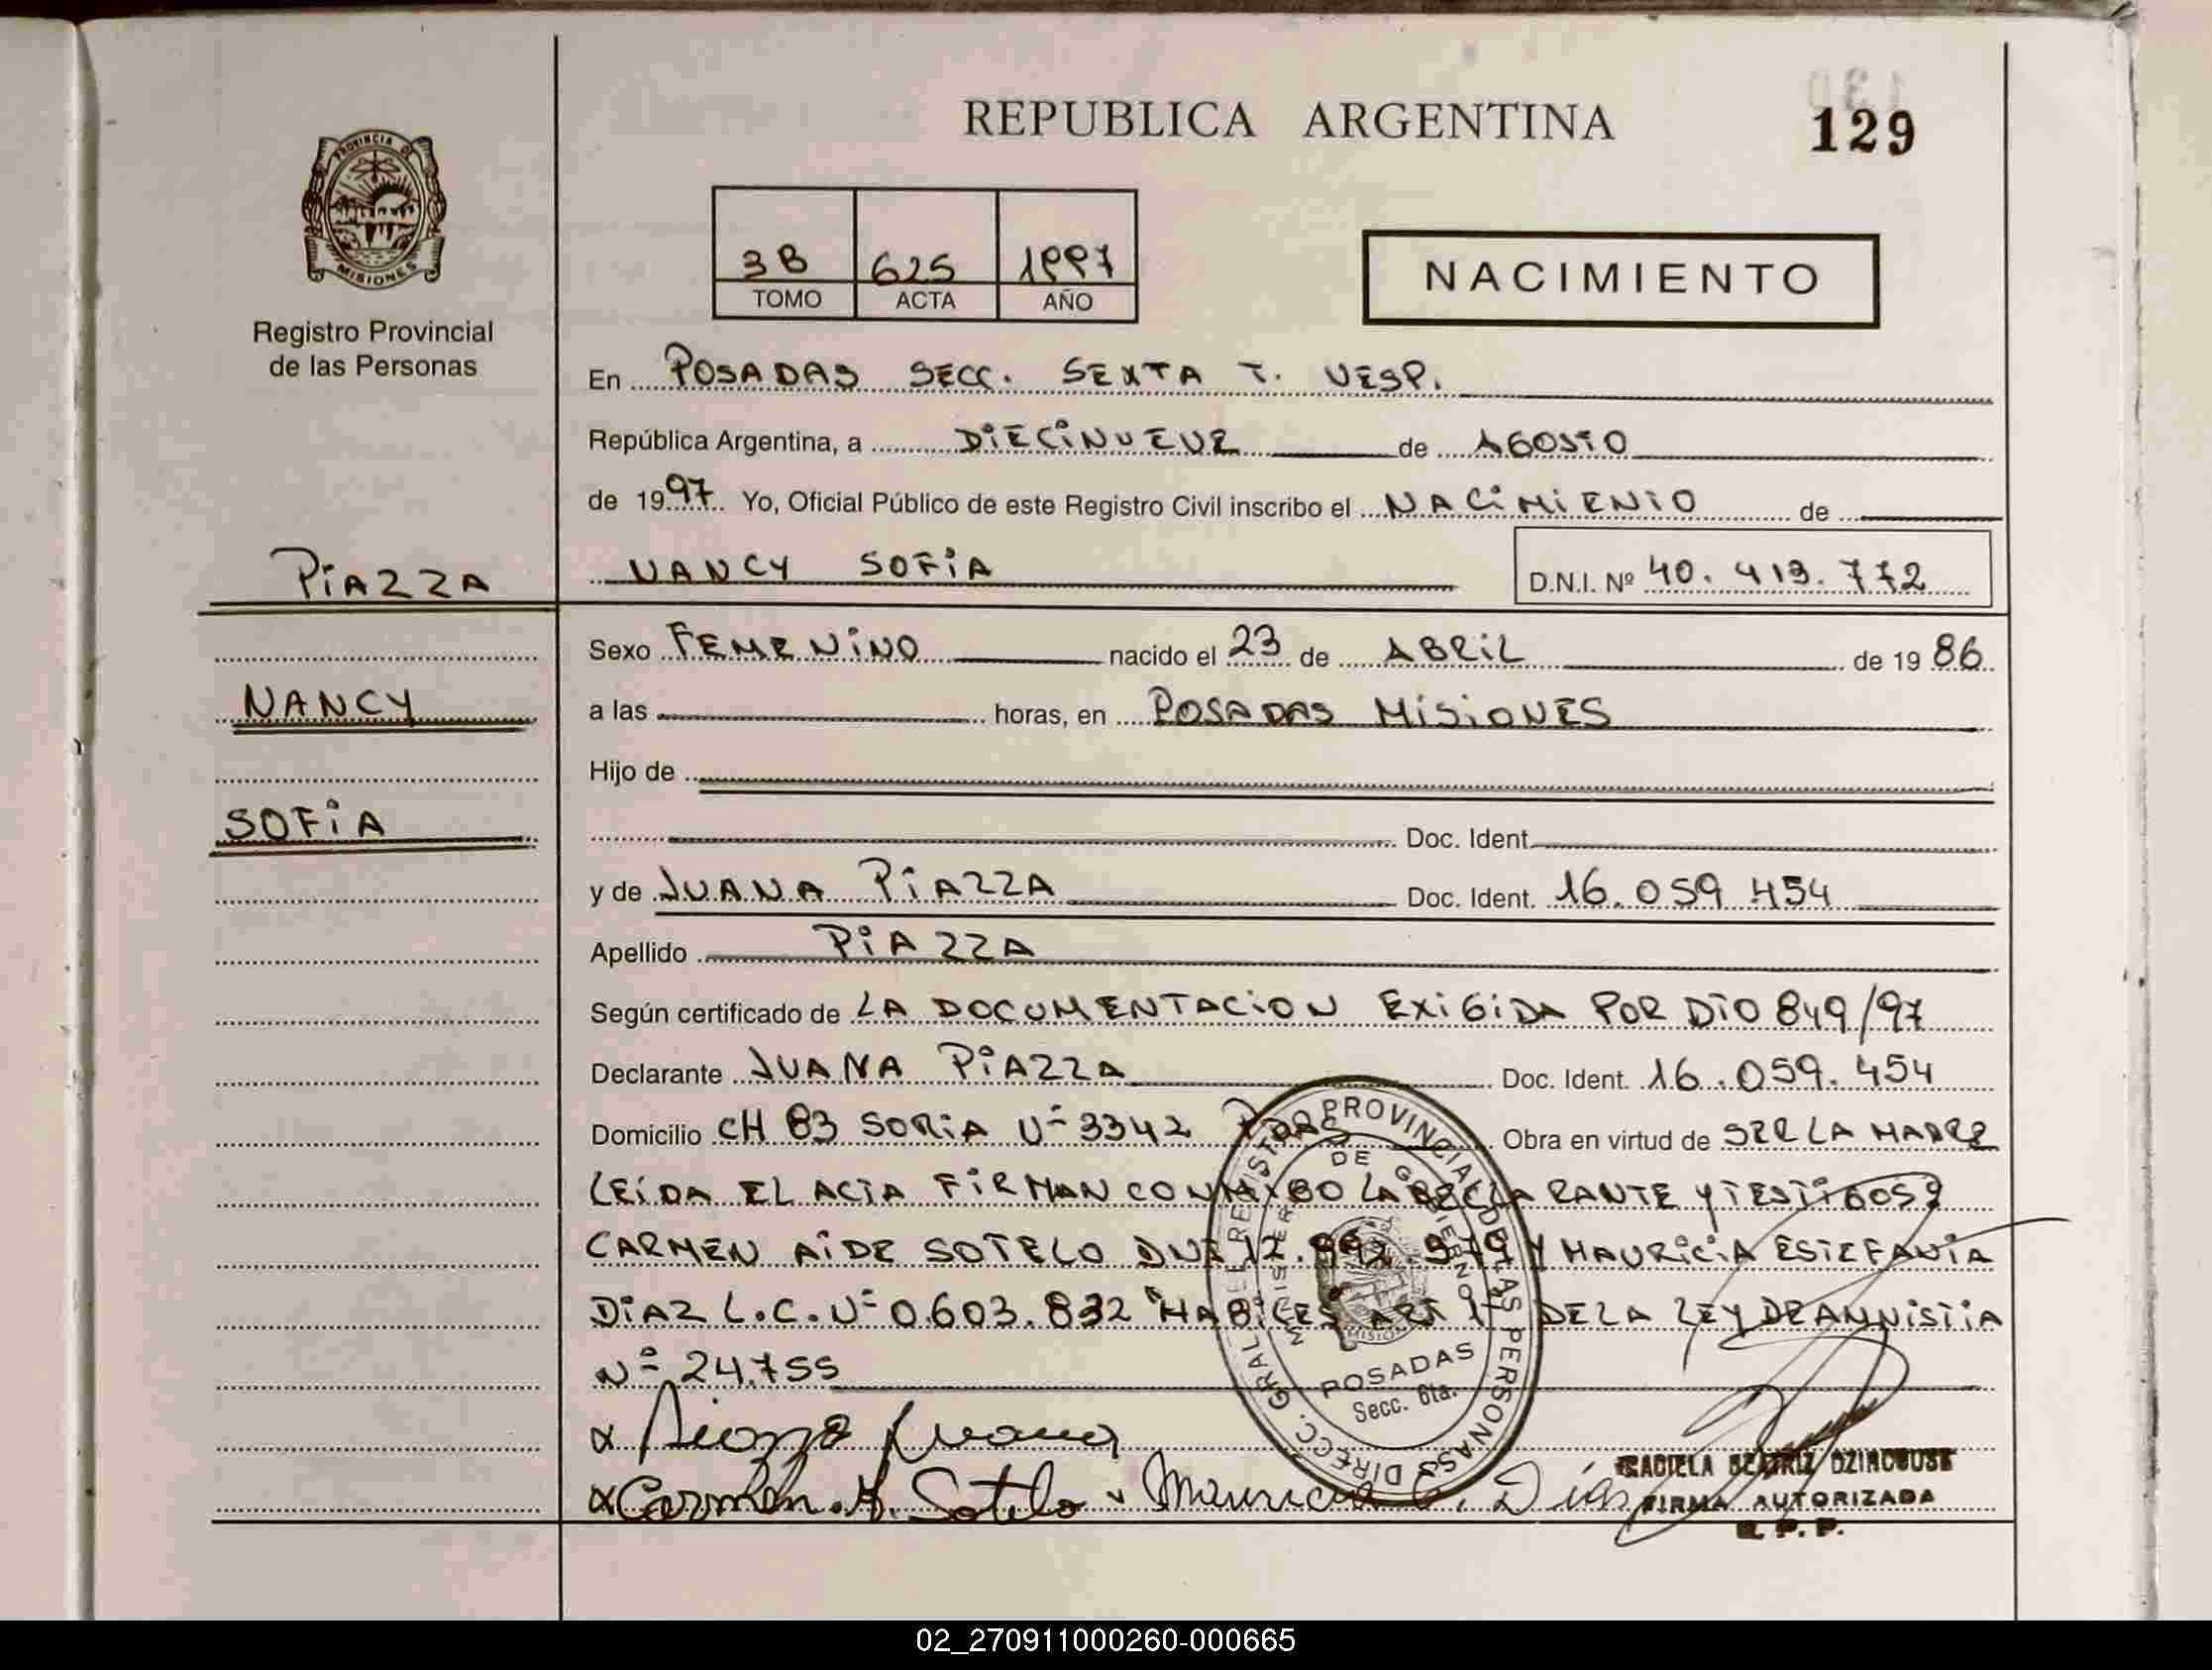 REPUBLICA ARGENTINA
129
PROVINCIA DE
MISIONES
Registro Provincial
de las Personas
3B 625 1997
TOMO ACTA AÑO
NACIMIENTO
En POSADAS SECC. SEXTA T. VESP.
República Argentina, a DIECINUEVE de AGOSTO
de 1997. Yo, Oficial Público de este Registro Civil inscribo el NACIMIENTO de
PIAZZA
NANCY SOFIA D.N.I. Nº 40.413.772
Sexo FEMENINO nacido el 23 de ABRIL de 1986
NANCY
a las horas, en POSADAS MISIONES
Hijo de
SOFIA
Doc. Ident.
y de JUANA PIAZZA Doc. Ident. 16.059.454
Apellido PIAZZA
Según certificado de LA DOCUMENTACION EXIGIDA POR DTO 849/97
Declarante JUANA PIAZZA Doc. Ident. 16.059.454
Domicilio CH 83 SORIA Nº 3342 PDAS Obra en virtud de SER LA MADRE
LEIDA EL ACTA FIRMAN CONMIGO LA DECLARANTE Y TESTIGOS
CARMEN AIDE SOTELO DNI 12. Y MAURICIA ESTEFANIA
DIAZ L.C. Nº 0.603.832 "HABILES" ART 1º DE LA LEY DE AMNISTIA
Nº 24.755
x Piazza Juana
x Carmen. A. Sotelo x Mauricia E. Díaz
DIRECC. GRAL DEL REGISTRO PROVINCIAL DE LAS PERSONAS
MINISTERIO DE GOBIERNO
POSADAS
Secc. 6ta.
BEATRIZ
FIRMA AUTORIZADA
R. P. P.
02_270911000260-000665